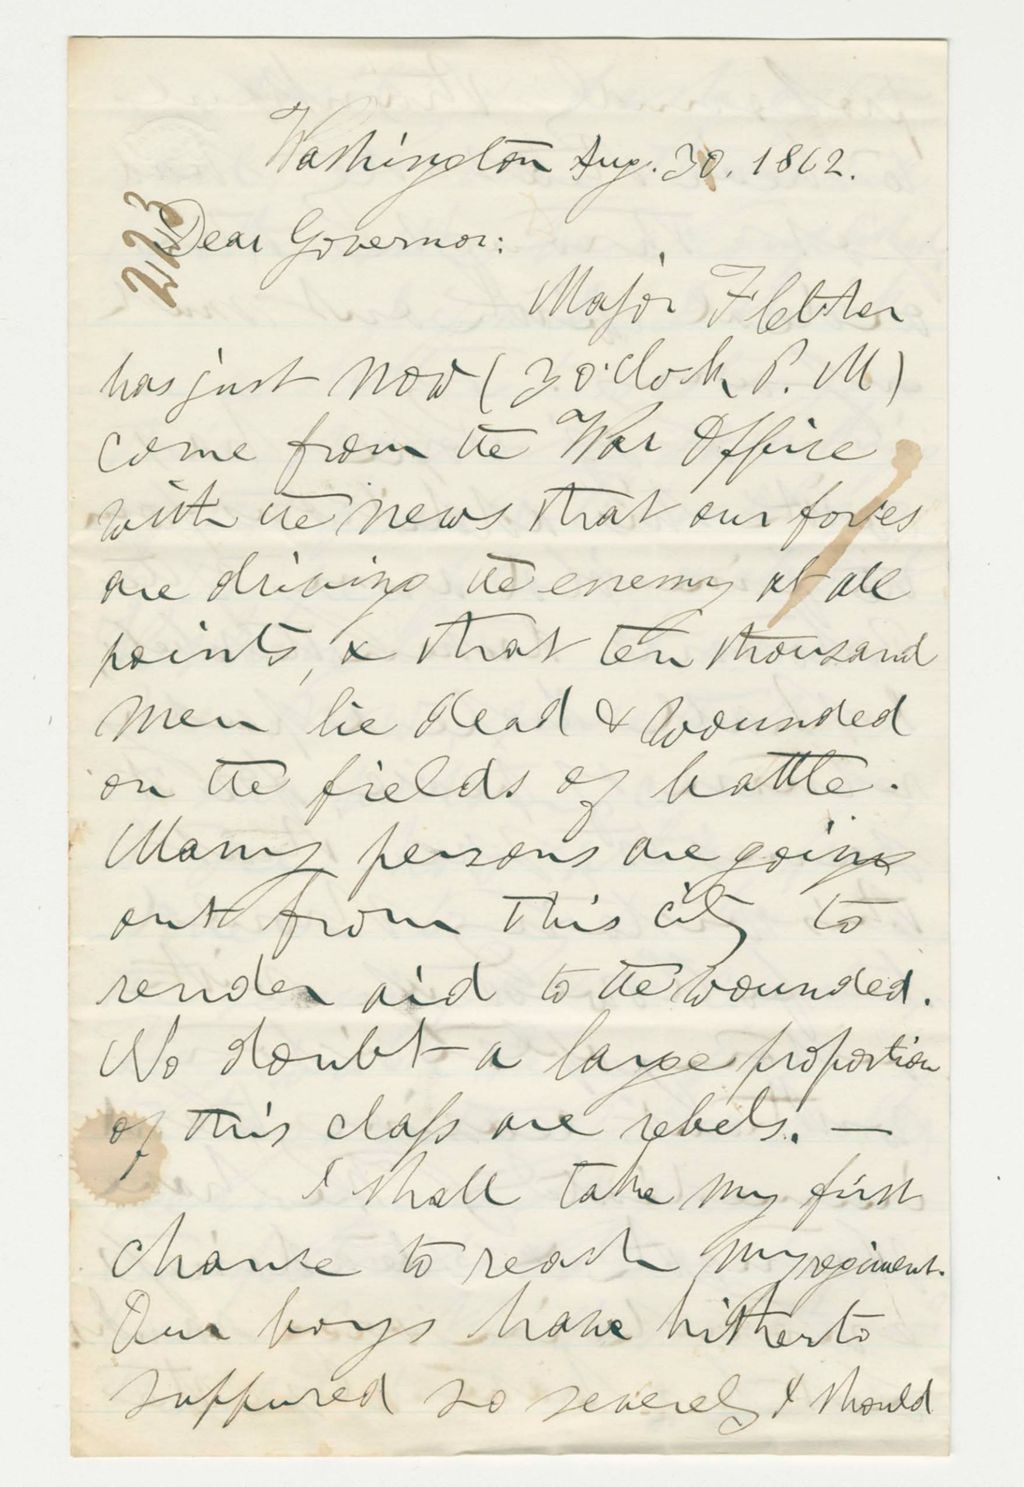 Washington Aug. 30. 1862.
223
Dear Governor:
Major Fletcher
has just now (3 o'clock, P. M)
come from the War Office
with the news that our forces
are driving the enemy at all
points, & that ten thousand
men lie dead & wounded
on the fields of battle.
Many persons are going
out from this city to
render aid to the wounded.
No doubt a large proportion
of this class are rebels. —
I shall take my first
chance to reach my regiment.
Our boys have hitherto
suffured so severely I should